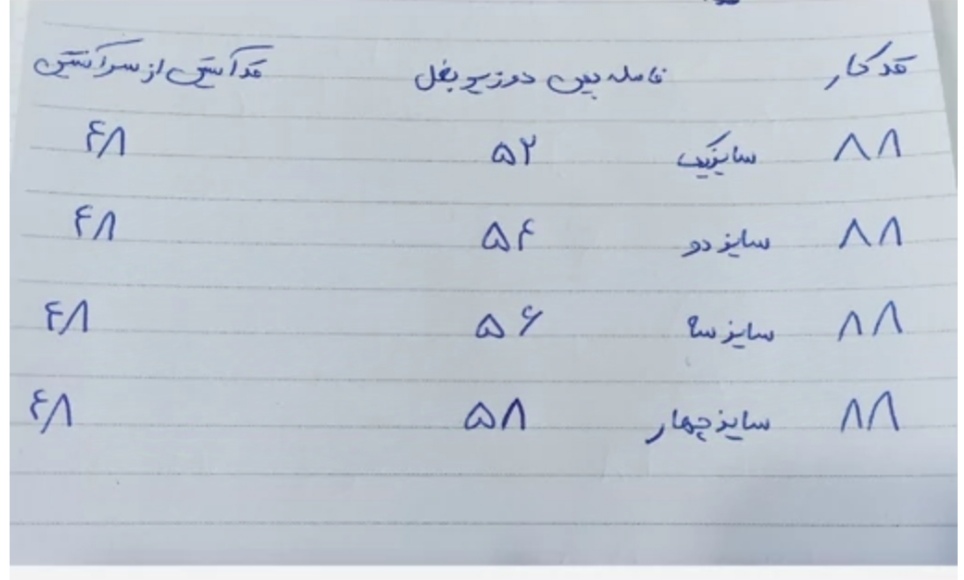 قد کار فاصله بین دو زیر بغل قد آستین از سرآستین
۸۸ سایز یک ۵۲ ۴۸
۸۸ سایز دو ۵۴ ۴۸
۸۸ سایز سه ۵۶ ۴۸
۸۸ سایز چهار ۵۸ ۴۸